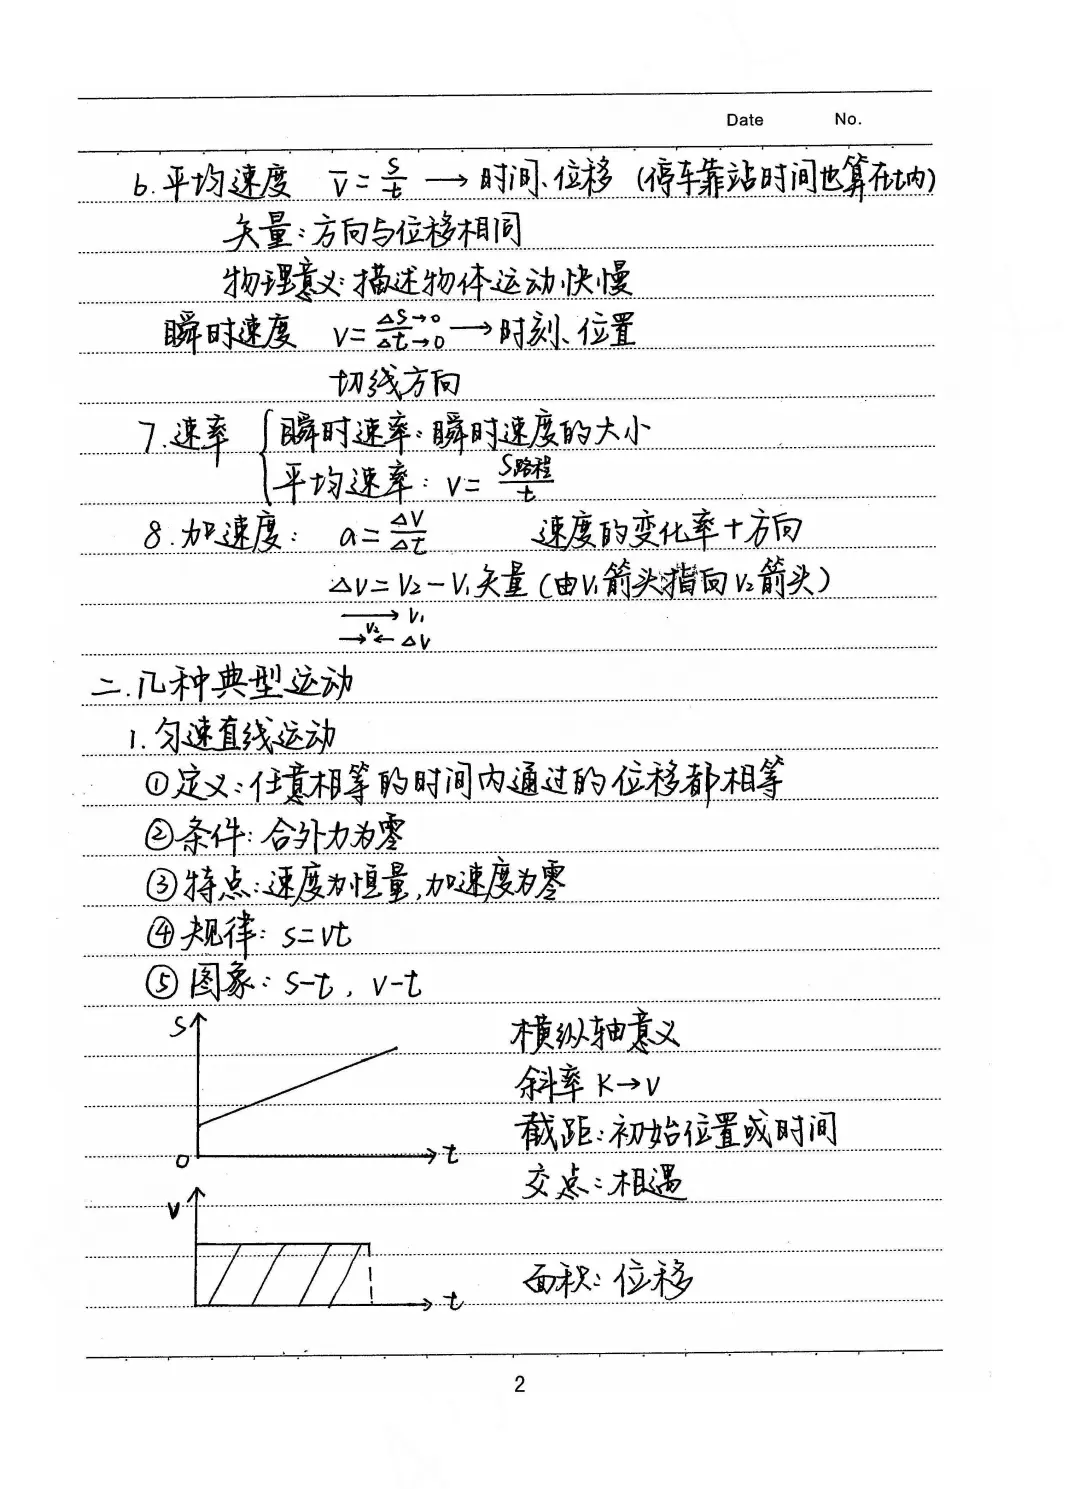 Date No.
6.平均速度 v̄=s/t→时间、位移（停车靠站时间也算在t内）
矢量：方向与位移相同
物理意义：描述物体运动快慢
瞬时速度 v=Δs→0/Δt→0→时刻、位置
切线方向
7.速率 { 瞬时速率：瞬时速度的大小
平均速率：v=s路程/t
8.加速度：a=Δv/Δt 速度的变化率+方向
Δv=v₂-v₁矢量（由v₁箭头指向v₂箭头）
→ v₁
v₂
→← Δv
二.几种典型运动
1.匀速直线运动
①定义：任意相等的时间内通过的位移都相等
②条件：合外力为零
③特点：速度为恒量，加速度为零
④规律：s=vt
⑤图象：s-t，v-t
s 横纵轴意义
斜率k→v
截距：初始位置或时间
0 t
交点：相遇
v
面积：位移
t
2